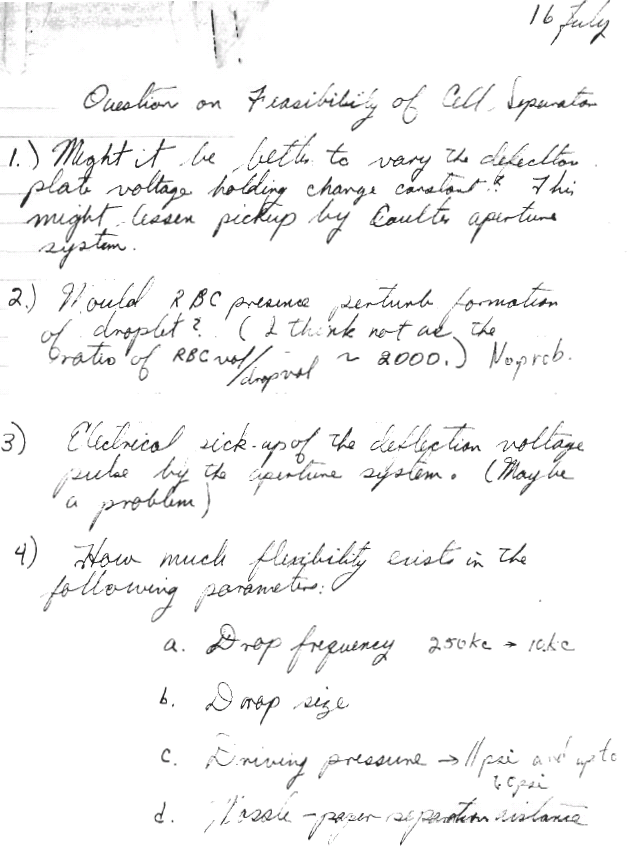 16 July
Question on Feasibility of Cell Separator
1.) Might it be better to vary the defecltion
plate voltage holding change constant? This
might lessen pickup by Coulter aperture
system.
2.) Would RBC presence perturb formation
of droplet? (I think not as the
ratio of RBC vol/dropvol ~ 2000.) No prob.
3) Electrical pick-up of the deflection voltage
pulse by the aperture system. (Maybe
a problem)
4) How much flexibility exists in the
following parameters:
a. Drop frequency 250kc → 10kc
b. Drop size
c. Driving pressure → 11psi and up to
60psi
d. Nossle - paper separation distance